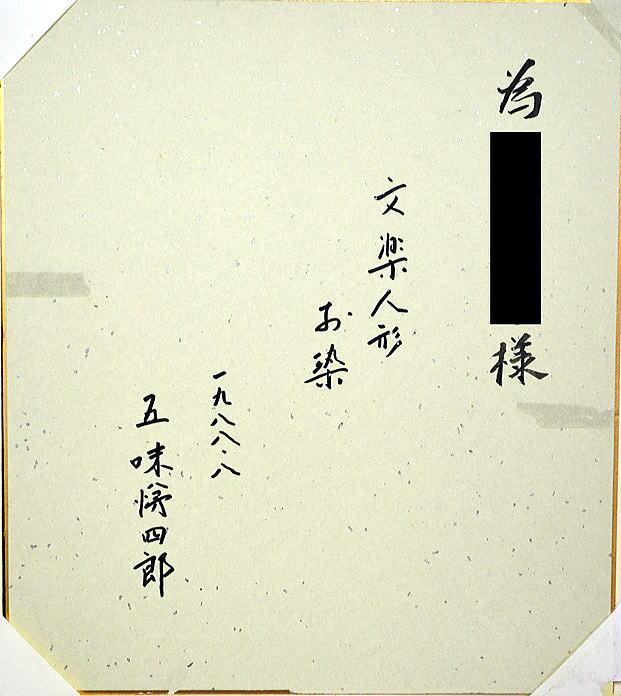 為
様
文楽人形
お染
一九八八・八
五味悌四郎